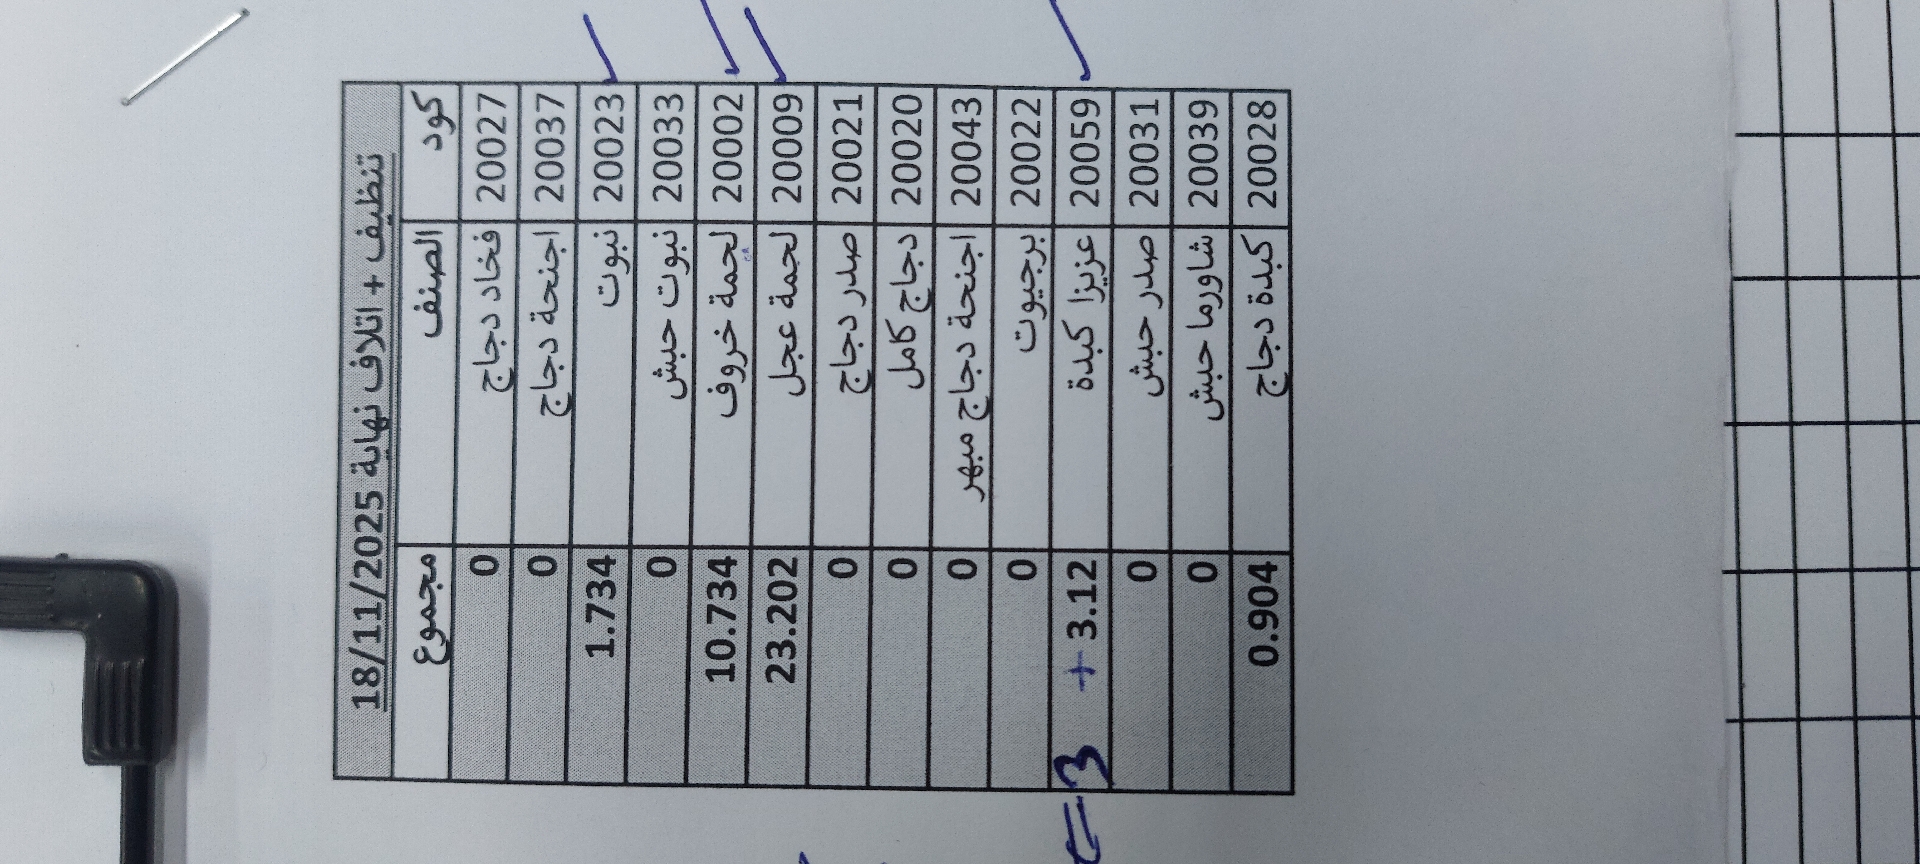 تنظيف + اتلاف نهاية 18/11/2025
كود الصنف مجموع
20027 فخاد دجاج 0
20037 اجنحة دجاج 0
20023 نبوت 1.734
20033 نبوت حبش 0
20002 لحمة خروف 10.734
20009 لحمة عجل 23.202
20021 صدر دجاج 0
20020 دجاج كامل 0
20043 اجنحة دجاج مبهر 0
20022 برجيوت 0
20059 عزيزا كبدة 3.12 + 3 =
20031 صدر حبش 0
20039 شاورما حبش 0
20028 كبدة دجاج 0.904